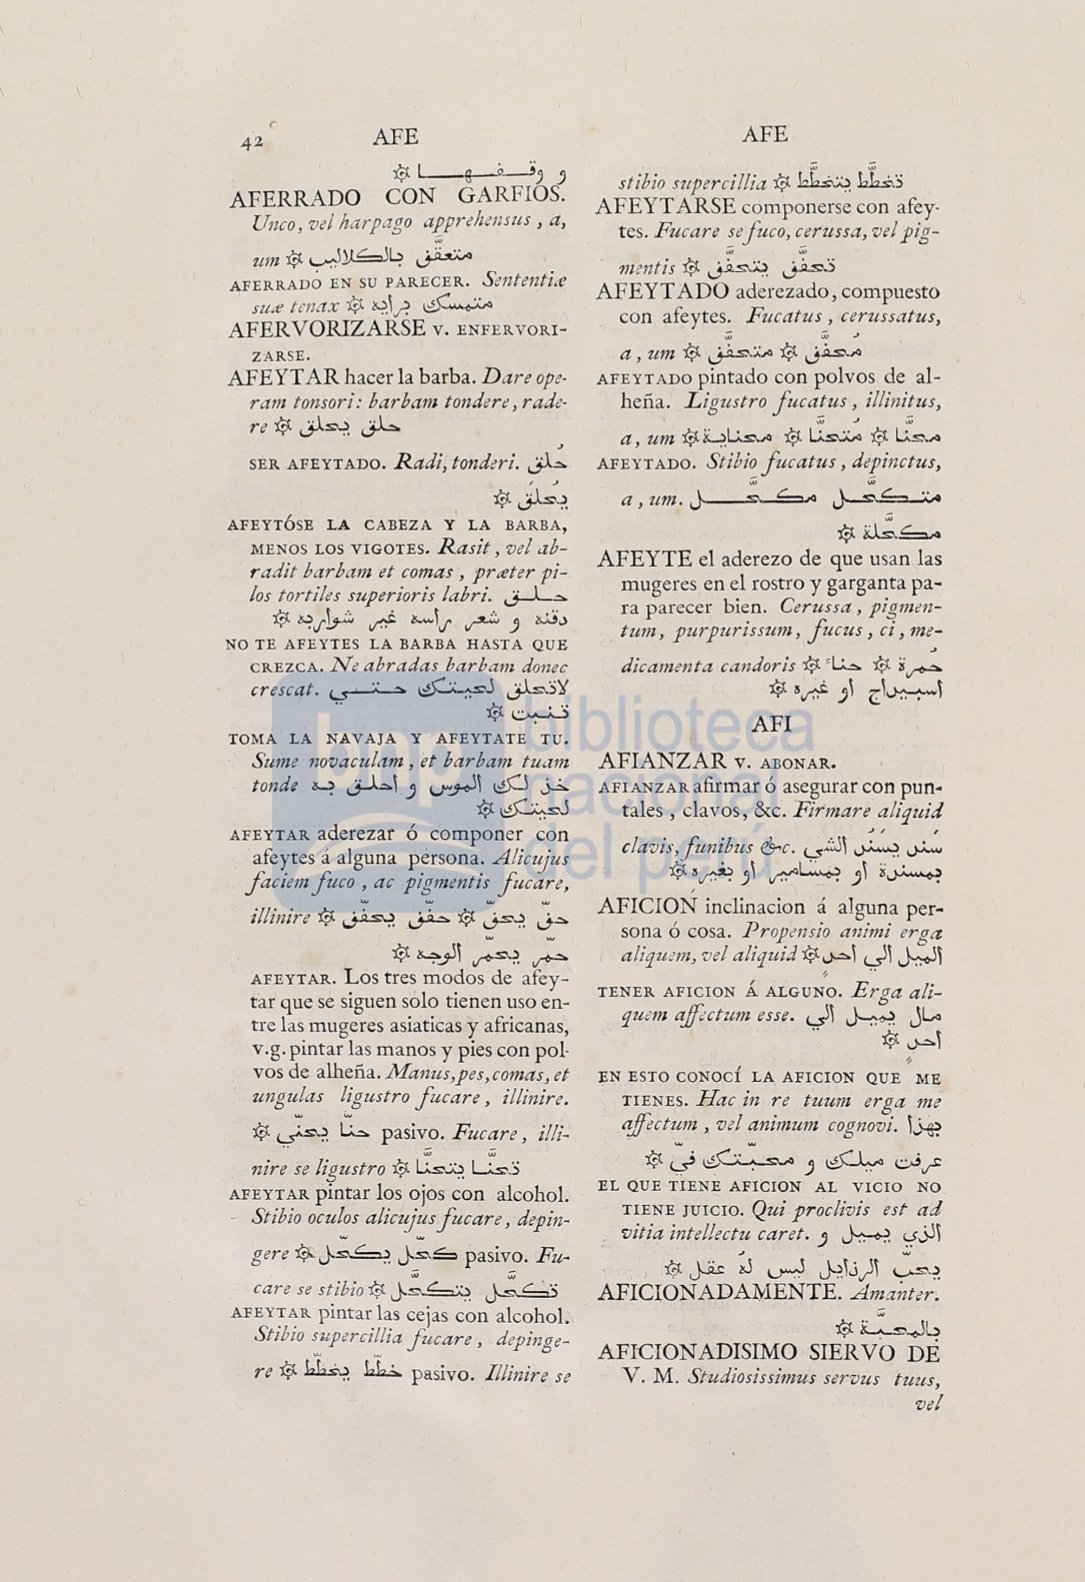 42 AFE
و وقــفــهــا ۞
AFERRADO CON GARFIOS.
Unco, vel harpago apprehensus, a,
um ۞ متعقّف بالكلاليب
AFERRADO EN SU PARECER. Sententiæ
suæ tenax ۞ متمسك برايه
AFERVORIZARSE v. ENFERVORI-
ZARSE.
AFEYTAR hacer la barba. Dare ope-
ram tonsori: barbam tondere, rade-
re ۞ حلق يحلق
SER AFEYTADO. Radi, tonderi. حُلق
يُحلَق ۞
AFEYTÓSE LA CABEZA Y LA BARBA,
MENOS LOS VIGOTES. Rasit, vel ab-
radit barbam et comas, præter pi-
los tortiles superioris labri. حــلــق
دقنه و شعر راسه غير شواربه ۞
NO TE AFEYTES LA BARBA HASTA QUE
CREZCA. Ne abradas barbam donec
crescat. لاتحلق لحيتك حتــي
تنبت ۞
TOMA LA NAVAJA Y AFEYTATE TU.
Sume novaculam, et barbam tuam
tonde خذ لك الموس و احلق به
لحيتك ۞
AFEYTAR aderezar ó componer con
afeytes á alguna persona. Alicujus
faciem fuco, ac pigmentis fucare,
illinire ۞ حفّ يحفّ ۞ حفّف يحفّف
حمّر يحمّر الوجه ۞
AFEYTAR. Los tres modos de afey-
tar que se siguen solo tienen uso en-
tre las mugeres asiaticas y africanas,
v.g. pintar las manos y pies con pol-
vos de alheña. Manus, pes, comas, et
ungulas ligustro fucare, illinire.
حنّا يحنّي ۞ pasivo. Fucare, illi-
nire se ligustro ۞ تحنّا يتحنّا
AFEYTAR pintar los ojos con alcohol.
Stibio oculos alicujus fucare, depin-
gere ۞ كحّل يكحّل pasivo. Fu-
care se stibio ۞ تكحّل يتكحّل
AFEYTAR pintar las cejas con alcohol.
Stibio supercillia fucare, depinge-
re ۞ خطّط يخطّط pasivo. Illinire se
AFE
stibio supercillia ۞ تخطّط يتخطّط
AFEYTARSE componerse con afey-
tes. Fucare se fuco, cerussa, vel pig-
mentis ۞ تحفّف يتحفّف
AFEYTADO aderezado, compuesto
con afeytes. Fucatus, cerussatus,
a, um ۞ محفّف ۞ متحفّف
AFEYTADO pintado con polvos de al-
heña. Ligustro fucatus, illinitus,
a, um ۞ محنّا ۞ مُتحنّا ۞ محناية
AFEYTADO. Stibio fucatus, depinctus,
a, um. متــكحّل مكــحّــل
مكحّلة ۞
AFEYTE el aderezo de que usan las
mugeres en el rostro y garganta pa-
ra parecer bien. Cerussa, pigmen-
tum, purpurissum, fucus, ci, me-
dicamenta candoris ۞ حُمرة ۞ حناء
اسبيداج او غيره ۞
AFI
AFIANZAR v. ABONAR.
AFIANZAR afirmar ó asegurar con pun-
tales, clavos, &c. Firmare aliquid
clavis, funibus &c. سَند يسنُد الشي
بمسندة او بمسامير او بغيره ۞
AFICION inclinacion á alguna per-
sona ó cosa. Propensio animi erga
aliquem, vel aliquid ۞ الميل الي احد
TENER AFICION Á ALGUNO. Erga ali-
quem affectum esse. مال يميل الي
احد ۞
EN ESTO CONOCÍ LA AFICION QUE ME
TIENES. Hac in re tuum erga me
affectum, vel animum cognovi. بهذا
عرفت ميلك و محبّتك فيّ ۞
EL QUE TIENE AFICION AL VICIO NO
TIENE JUICIO. Qui proclivis est ad
vitia intellectu caret. الذي يميل و
يحبّ الرذايل ليس لهُ عقل ۞
AFICIONADAMENTE. Amanter.
بالمحبّة ۞
AFICIONADISIMO SIERVO DE
V. M. Studiosissimus servus tuus,
vel
biblioteca
nacional
del perú
bnp